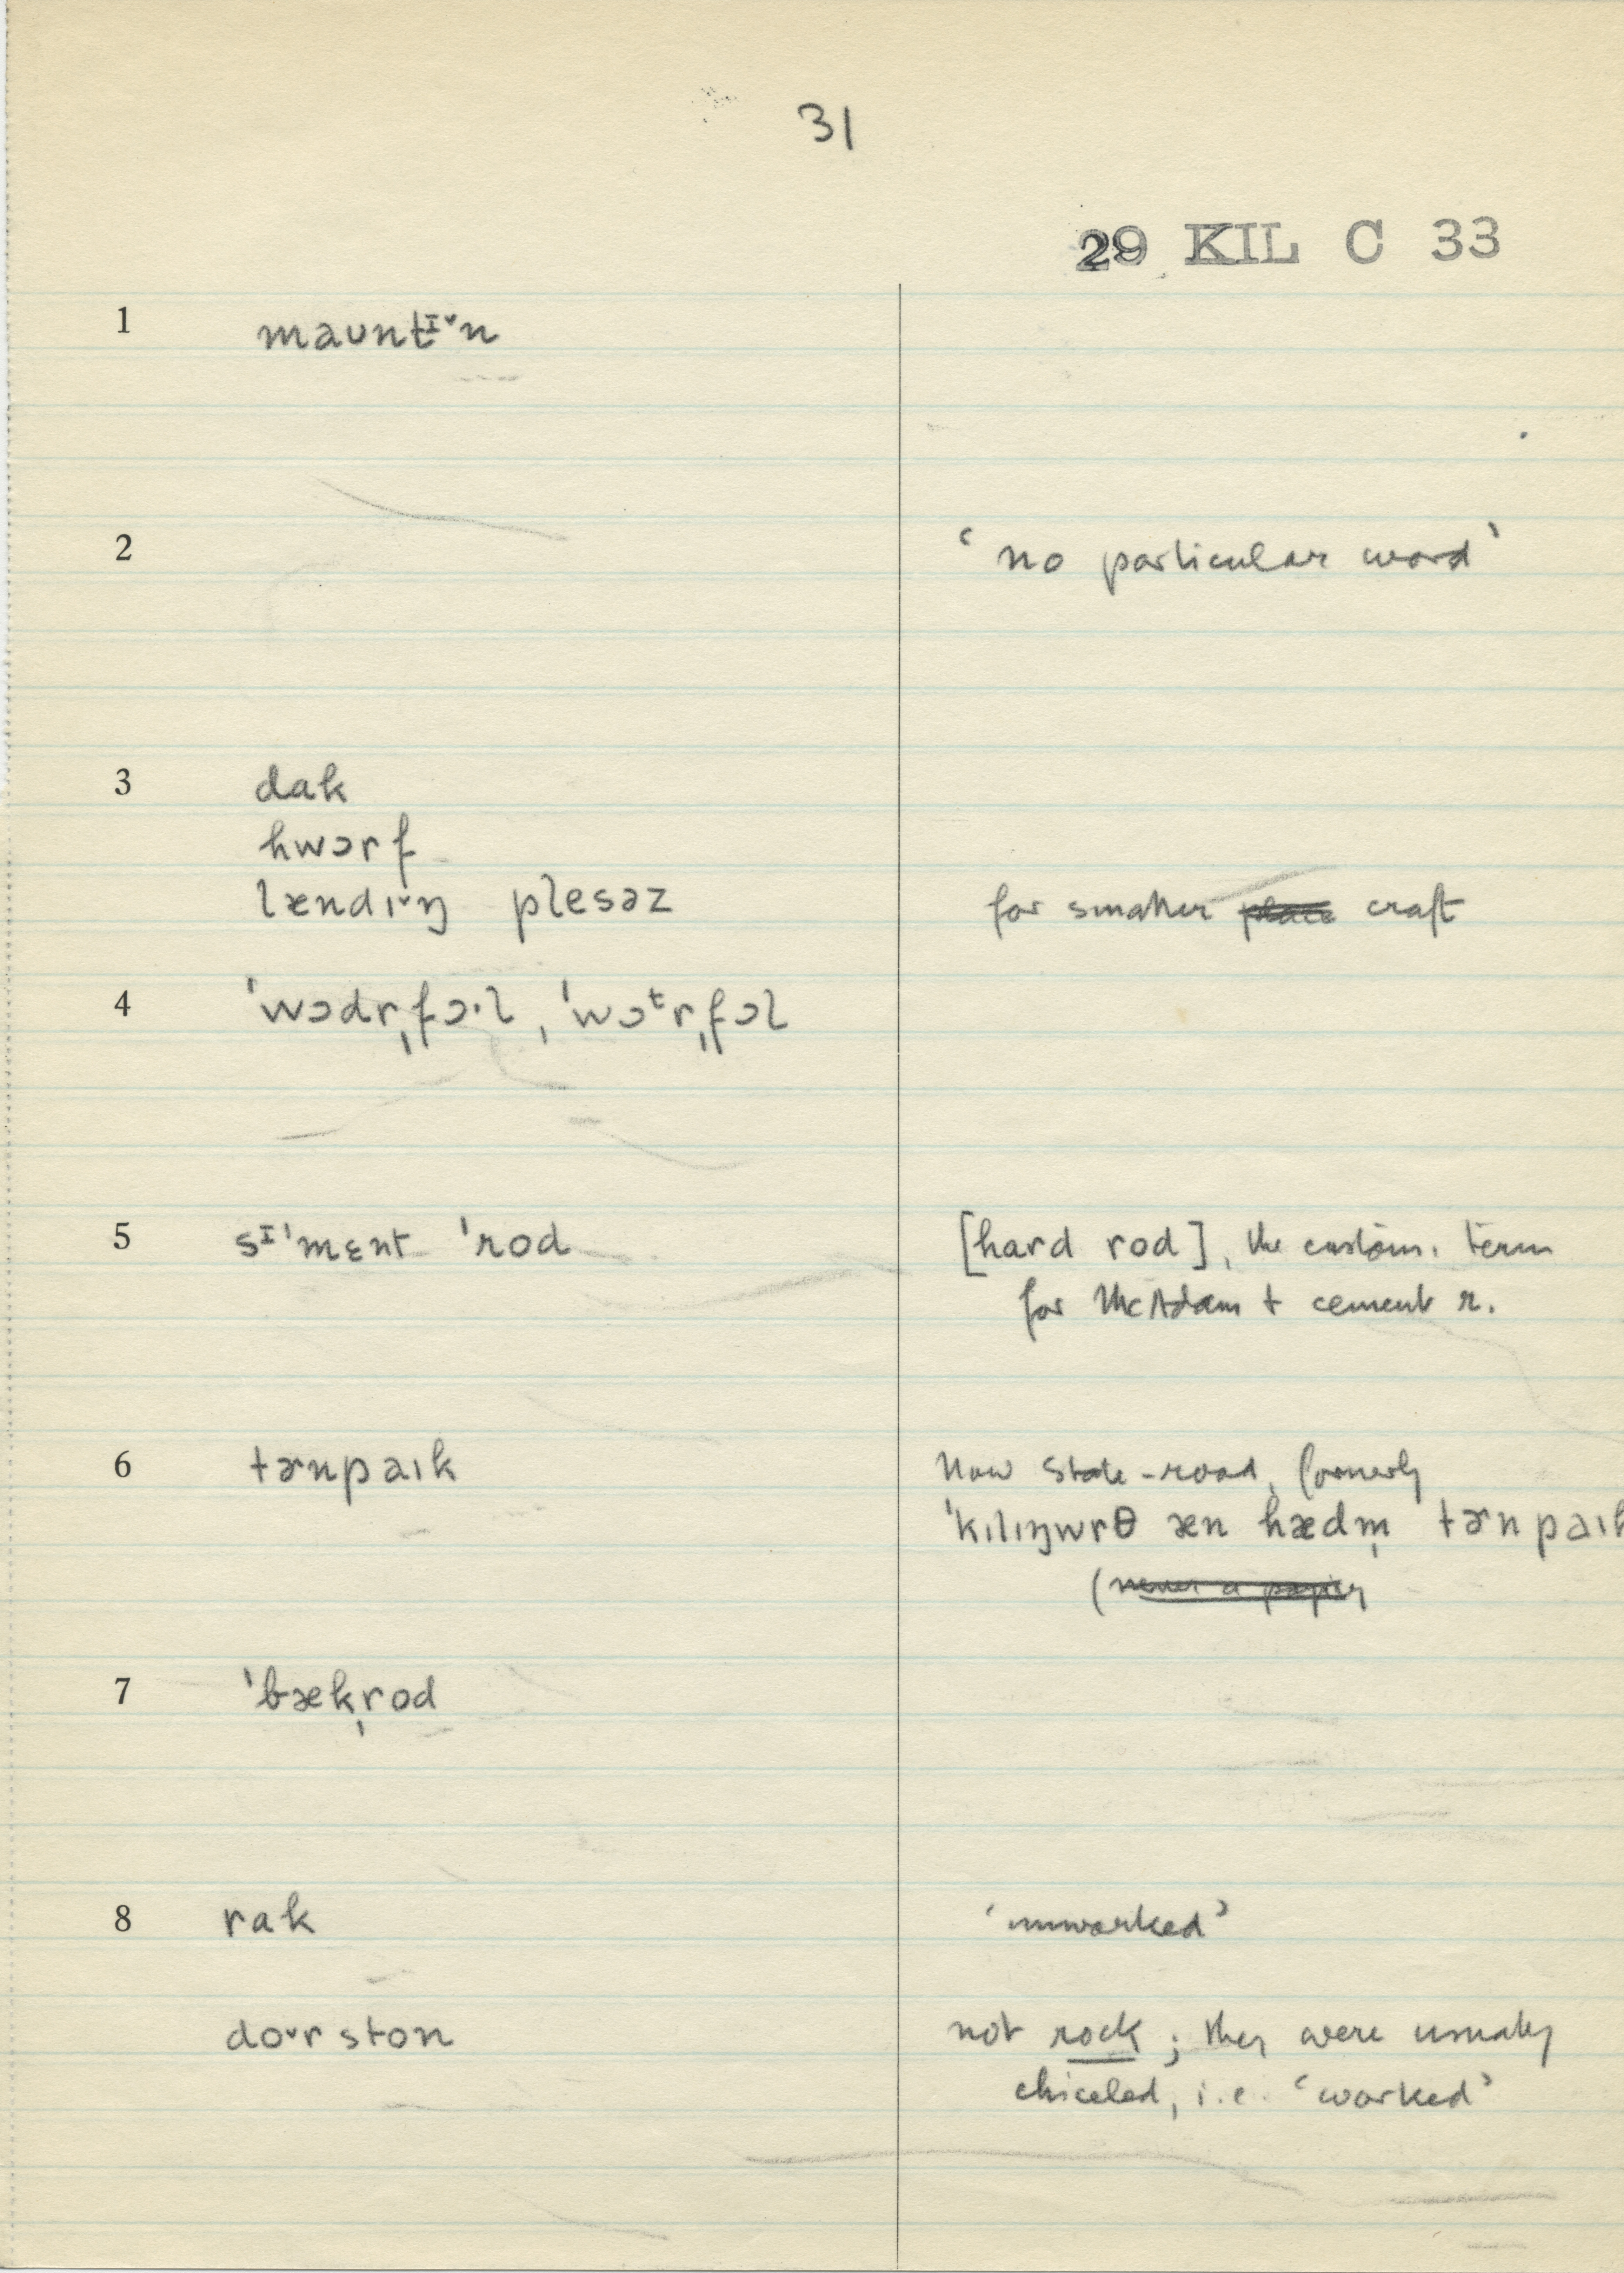 31
29 KIL C 33
1 maʊntɪ˅n
2 ‘no particular word’
3 dak
hwɔrf
lændɪ˅ŋ plesəz for smaller craft
4 ˈwɔdrˌfɔ·l, ˈwɔᵗrˌfɔl
5 sɪˈmɛnt ˈrod [hard rod], the custom. term
for McAdam + cement r.
6 tɚnpaɪk Now State-road, formerly
ˈkɪlɪŋwrθ æn hædm̩ tɚnpaɪk
7 ˈbækˌrod
8 rak ‘unworked’
do˅r ston not rock; they were usually
chiceled, i.e. ‘worked’